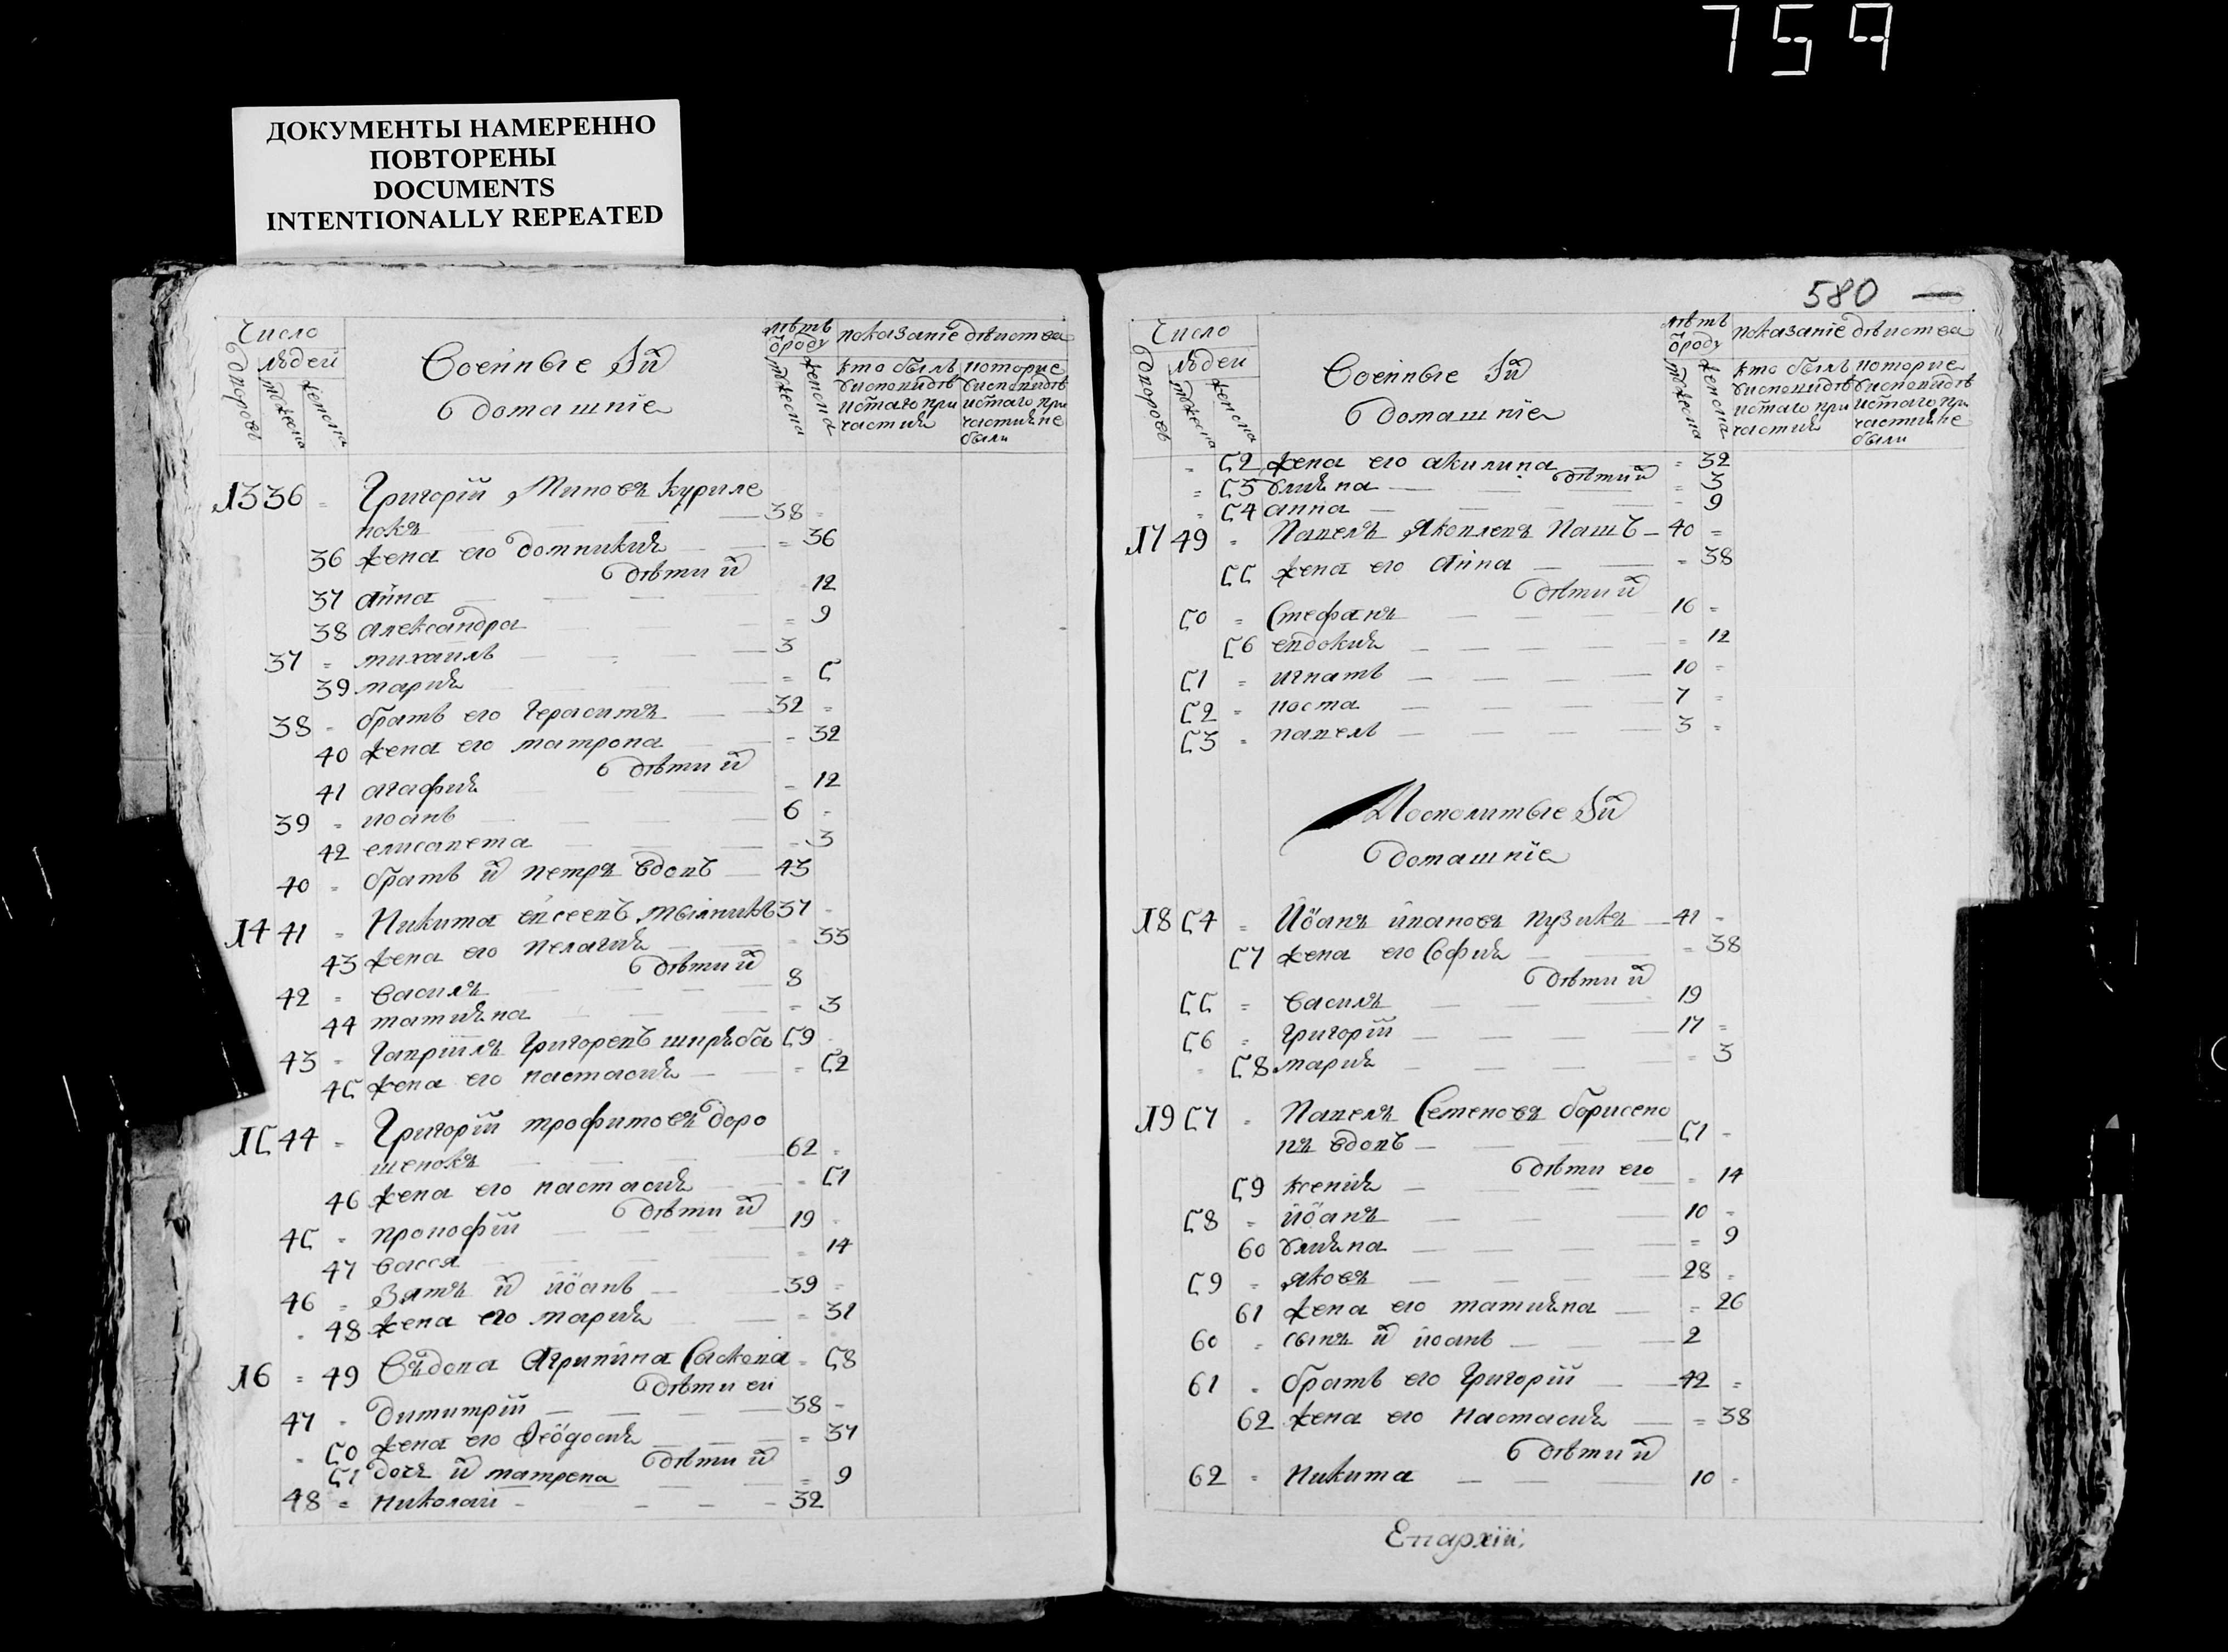 759
ДОКУМЕНТЫ НАМЕРЕННО
ПОВТОРЕНЫ
DOCUMENTS
INTENTIONALLY REPEATED
Число
людей
дворовъ мужеска женска
Военные Ій
домашніе
лѣтъ
ѿроду
мужеска женска
показаніе дѣиства
кто былъ уисповиди ъ истаго причастия
которие уисповидѣ истаго причастия не были
13 36 = Григорій Миновъ Куриле
нокъ 38 =
36 жена его домникия = 36
дѣти ий
37 анна = 12
38 александра = 9
37 = михаилъ 3
39 мария = 5
38 = братъ его Герасимъ 32 =
40 жена его матрона = 32
дѣти ий
41 агафия = 12
39 = иоанъ 6 =
42 елисавета = 3
40 = братъ ий петръ вдовъ 43
14 41 = Никита евсеевъ 37 =
43 жена его пелагия = 33
дѣти ий
42 = василъ 8
44 татияна = 3
43 = Гавріилъ Григоревъ 59
45 жена его настасия = 52
15 44 = Григорій трофимовъ доро
шенокъ 62 =
46 жена его настасия = 51
дѣти ий
45 = прокофій 19 =
47 васса = 14
46 = Зятъ ий іоанъ 39 =
48 жена его мария = 31
16 = 49 Вдова Агрипина = 58
дѣти еи
47 = димитрій 38 =
50 жена его Феодосия = 37
дѣти ий
51 дочъ ий матрена = 9
48 = николаи 32
580
Число
людеи
дворовъ мужеска женска
Военные Ій
домашніе
лѣтъ
ѿроду
мужеска женска
показаніе дѣиства
= 52 жена его акилина = 32
дѣти ий
= 53 улияна = 3
= 54 анна = 9
17 49 = Павелъ Яковлевъ Пашъ 40 =
55 жена его Анна = 38
дѣти ий
50 = Стефанъ 16 =
56 евдокия = 12
51 = игнатъ 10 =
52 = коста 7 =
53 = павелъ 3 =
Посполитые Ій
домашніе
18 54 = Иоанъ ивановъ пузикъ 41 =
57 жена его София = 38
дѣти ий
55 = василъ 19
56 = григорій 17 =
= 58 мария = 3
19 57 = Павелъ Семеновъ борисено
въ вдовъ 51 =
дѣти его
59 ксения = 14
58 = иоанъ 10 =
60 улияна = 9
59 = яковъ 28 =
61 жена его татияна = 26
60 = сынъ ий иоанъ 2
61 = братъ его Григорій 42 =
62 жена его Настасия = 38
дѣти ий
62 = Никита 10 =
Епархіи;